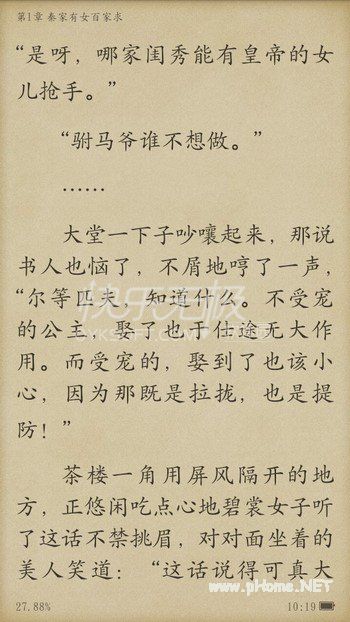 第1章 秦家有女百家求
“是呀，哪家闺秀能有皇帝的女
儿抢手。”
“驸马爷谁不想做。”
……
大堂一下子吵嚷起来，那说
书人也恼了，不屑地哼了一声，
“尔等匹夫，知道什么。不受宠
的公主，娶了也于仕途无大作
用。而受宠的，娶到了也该小
心，因为那既是拉拢，也是提
防！”
茶楼一角用屏风隔开的地
方，正悠闲吃点心地碧裳女子听
了这话不禁挑眉，对对面坐着的
美人笑道：“这话说得可真大
快乐无极
www.pHome.NET
27.88%
10:19